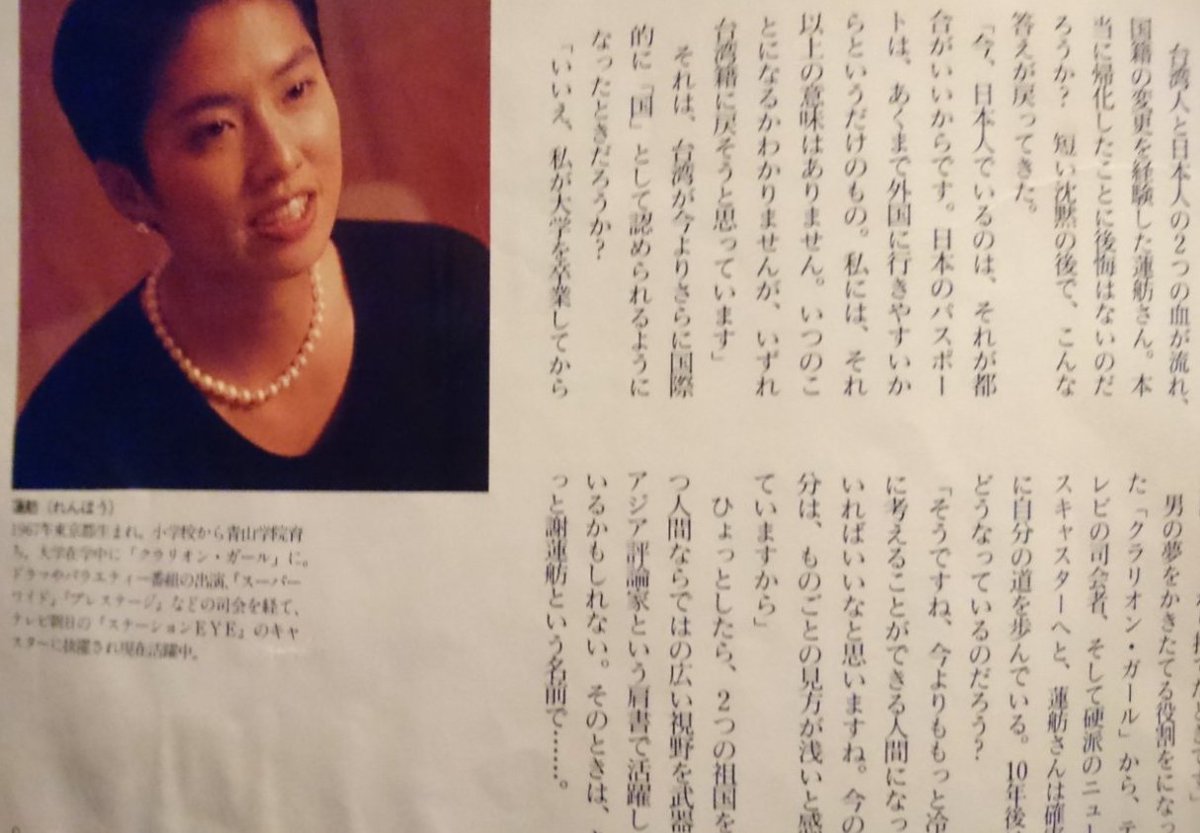 台湾人と日本人の2つの血が流れ、
国籍の変更を経験した蓮舫さん。本
当に帰化したことに後悔はないのだ
ろうか? 短い沈黙の後で、こんな
答えが戻ってきた。
「今、日本人でいるのは、それが都
合がいいからです。日本のパスポー
トは、あくまで外国に行きやすいか
らというだけのもの。私には、それ
以上の意味はありません。いつのこ
とになるかわかりませんが、いずれ
台湾籍に戻そうと思っています」
それは、台湾が今よりさらに国際
的に「国」として認められるように
なったときだろうか?
「いいえ、私が大学を卒業してから
男の夢をかきたてる役割をになっ
た「クラリオン・ガール」から、テ
レビの司会者、そして硬派のニュー
スキャスターへと、蓮舫さんは確実
に自分の道を歩んでいる。10年後
どうなっているのだろう?
「そうですね、今よりももっと冷
に考えることができる人間になっ
いればいいなと思いますね。今の
分は、ものごとの見方が浅いと感
ていますから」
ひょっとしたら、2つの祖国を
つ人間ならではの広い視野を武器
アジア評論家という肩書で活躍し
いるかもしれない。そのときは、
っと謝蓮舫という名前で……。
蓮舫(れんほう)
1967年東京都生まれ。小学校から青山学院育
ち。大学在学中に「クラリオン・ガール」に。
ドラマやバラエティー番組の出演、「スーパー
ワイド」、「プレステージ」などの司会を経て、
テレビ朝日の「ステーションEYE」のキャ
スターに抜擢され現在活躍中。